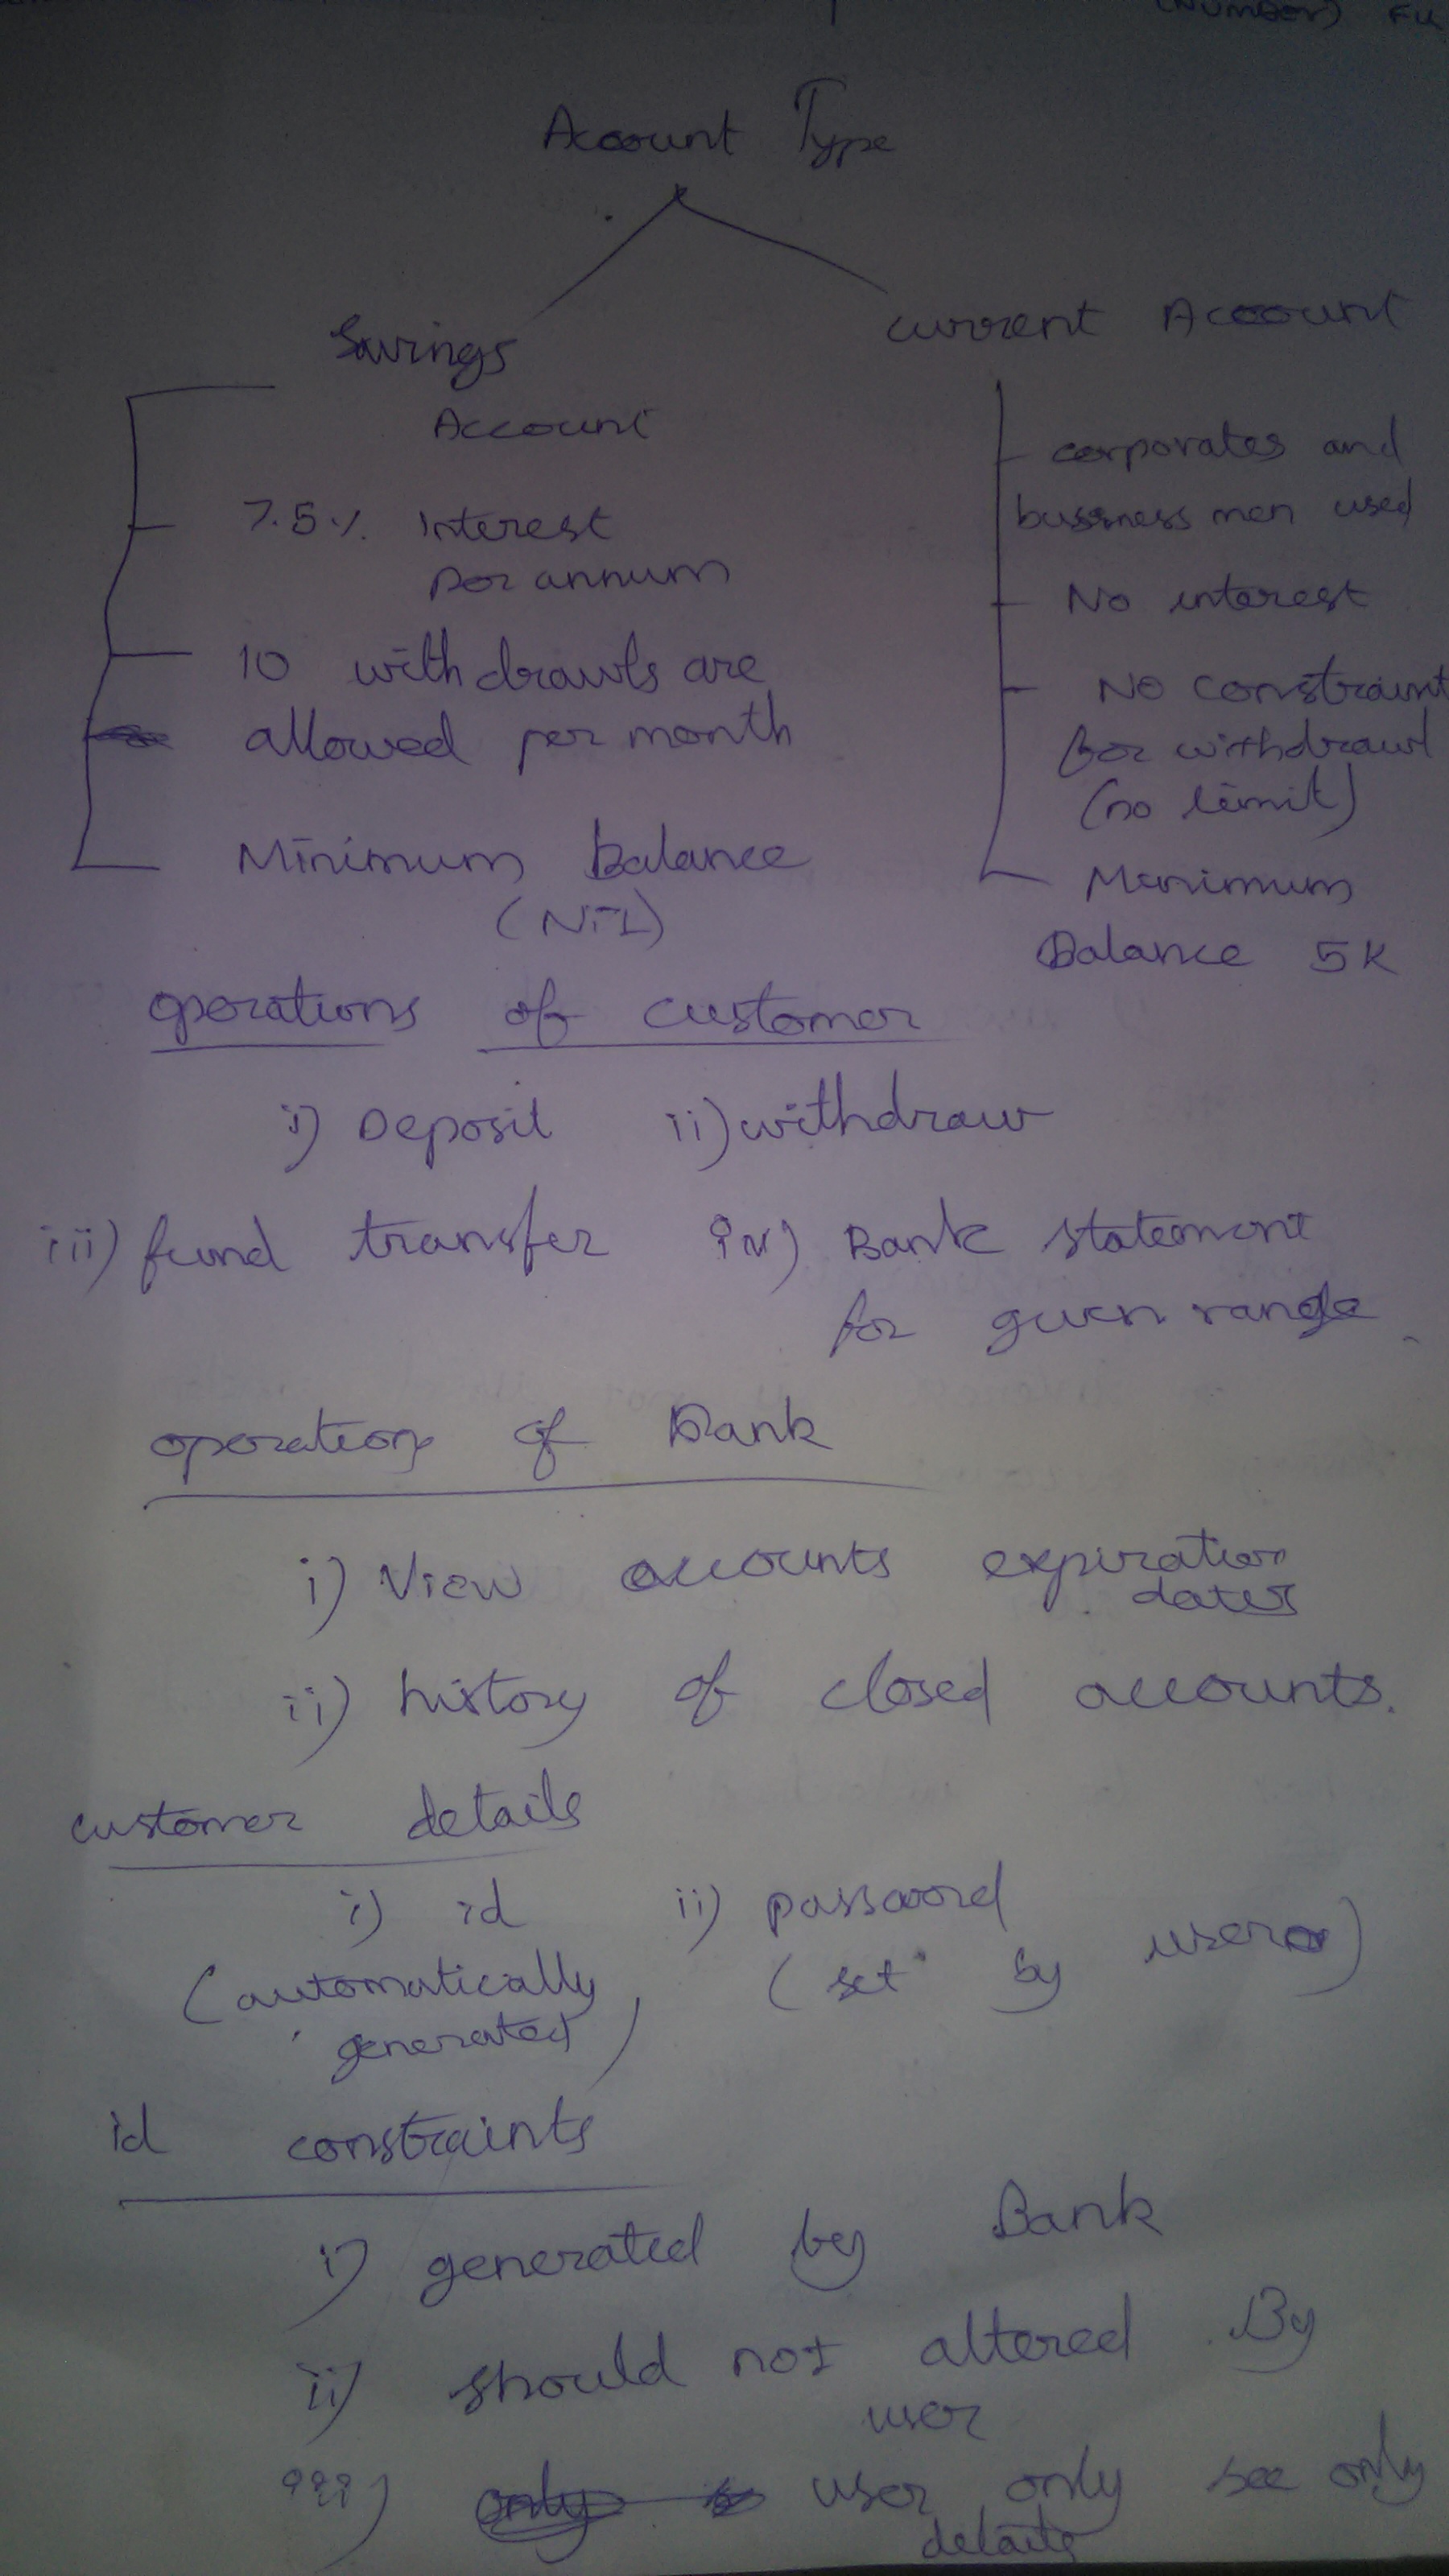 (NUMBER)
Account Type
Savings
Account
7.5% Interest
per annum
10 withdrawls are
allowed per month
Minimum Balance
(NIL)
current Account
corporates and
bussiness men used
No interest
No constraint
for withdrawl
(no limit)
Minimum
Balance 5K
operations of customer
i) Deposit ii) withdraw
iii) fund transfer iv) Bank statement
for given range
operations of Bank
i) View accounts expiration
dates
ii) history of closed accounts.
customer details
i) id ii) password
(automatically (set by user)
generated)
id constraints
i) generated by Bank
ii) should not altered By
user
iii) user only see only
details